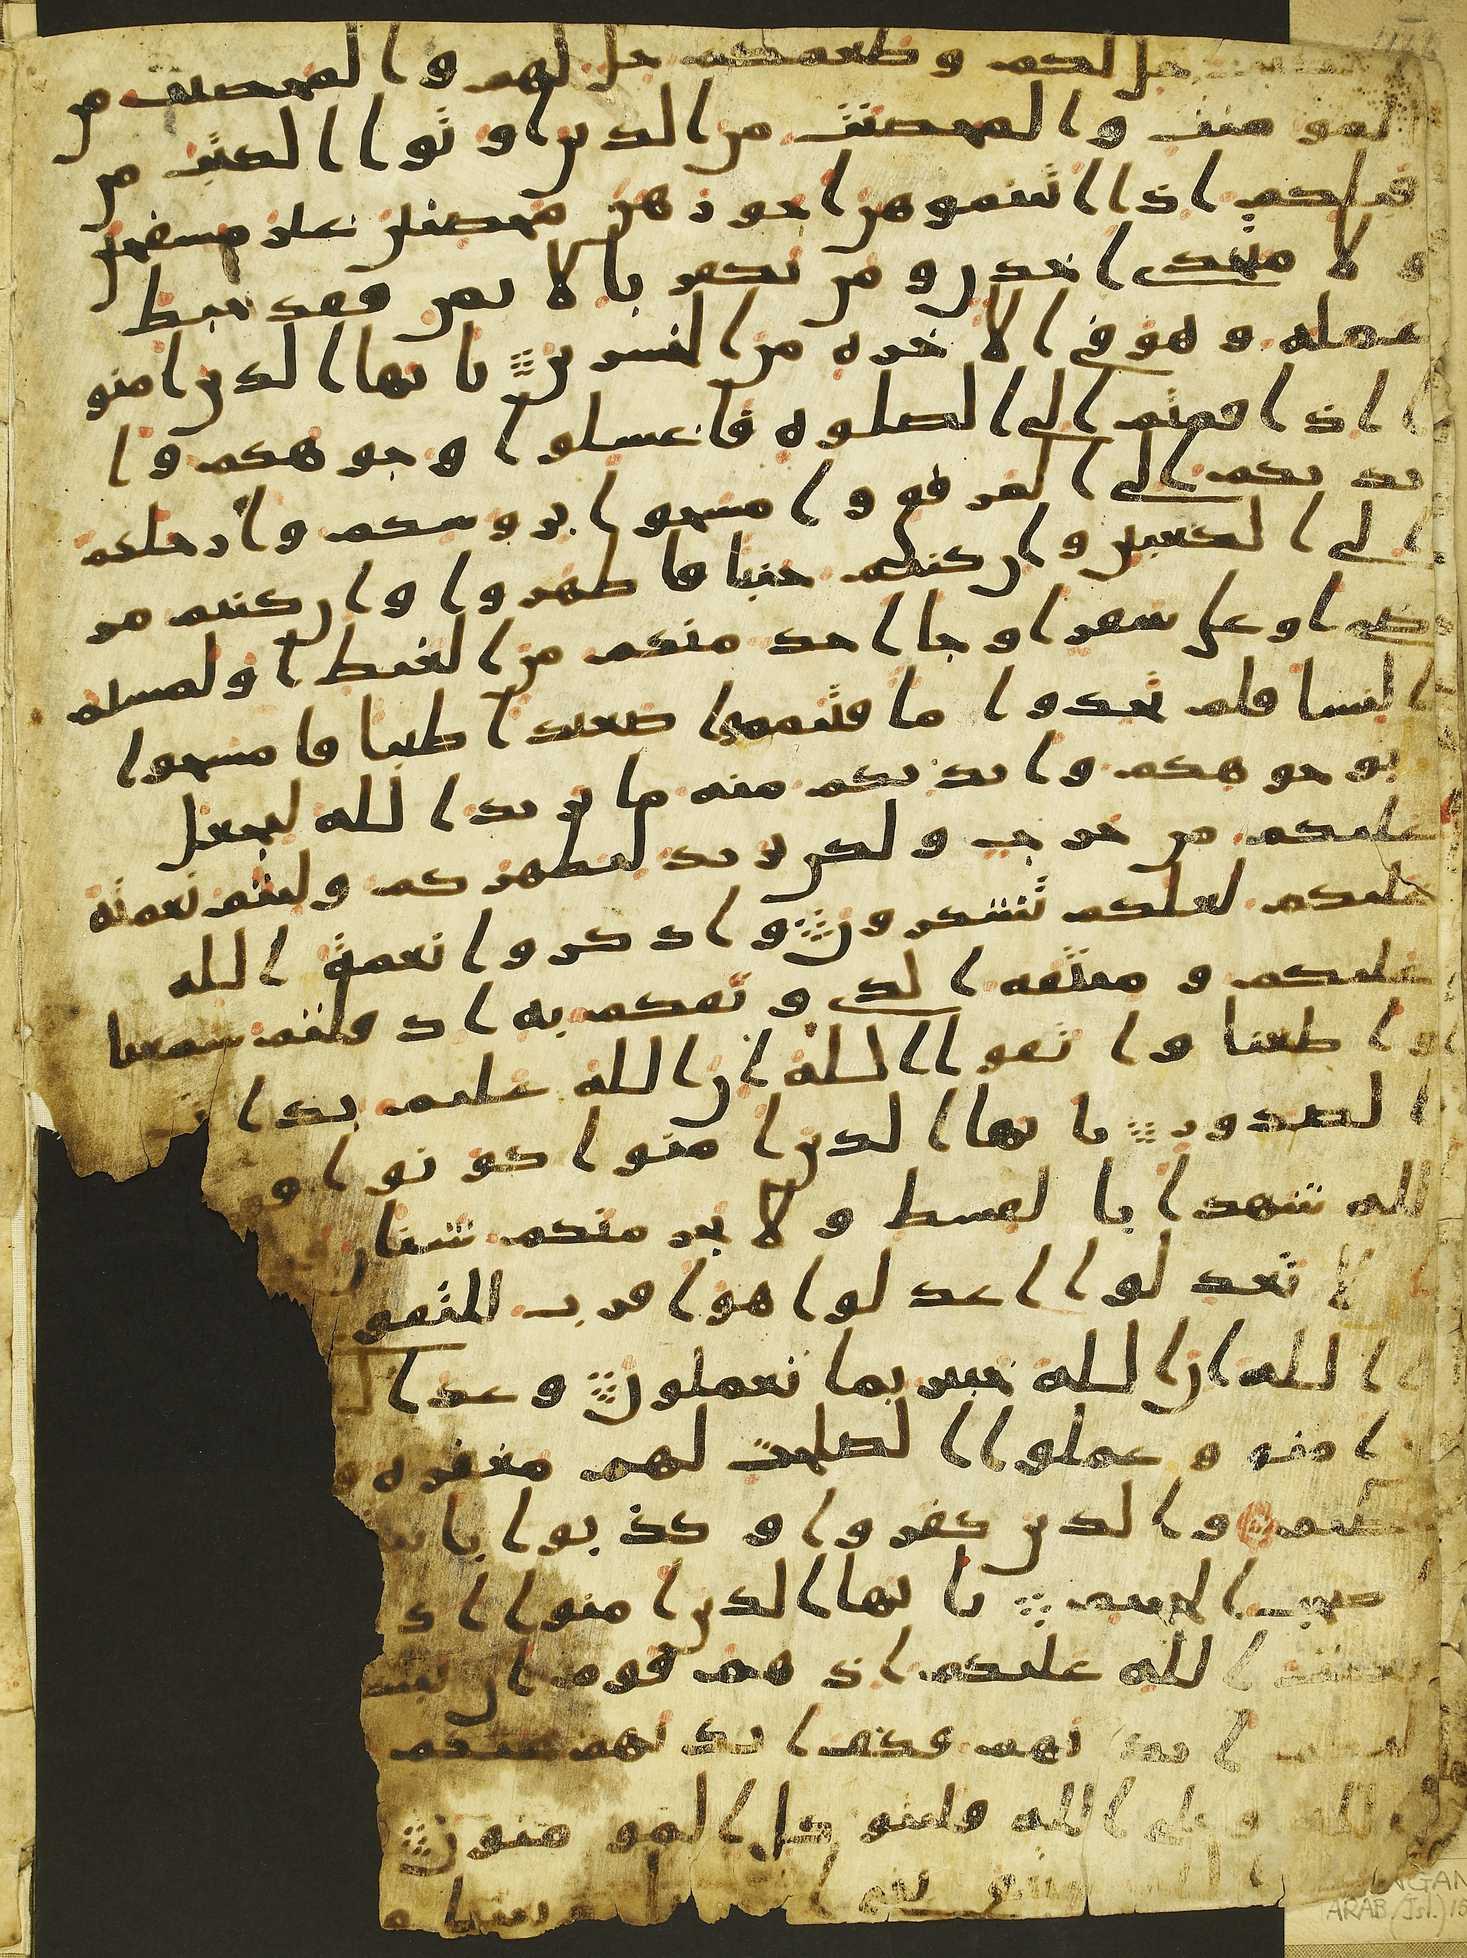 حل لكم و طعمكم حل لهم و المحصنت من
المو منت و المحصنت من الذين او تو ا الكتب من
قبلكم اذا اتيتمو هن اجو ر هن محصنين غير مسفحين
و لا متخذى اخدن و من يكفر با لا يمن فقد حبط
عمله و هو فى الا خره من الخسر ين يا يها الذين امنو
ا اذا قمتم الى الصلوه فا غسلو ا و جو هكم و ا
يد يكم الى المر فق و ا مسحو ا بر و سكم و ا ر جلكم
الى الكعبين و ان كنتم جنبا فا طهر و ا و ان كنتم مر
ضى او على سفر او جا احد منكم من الغيط او لمستم
النسا فلم تجد و ا ما فتيممو ا صعيد ا طيبا فا مسحو ا
بو جو هكم و ا يد يكم منه ما ير يد الله ليجعل
عليكم من حر ج و لكن ير يد ليطهر كم و ليتم نعمته
عليكم لعلكم تشكر و ن و ا ذ كر و ا نعمة الله
عليكم و ميثقه الذى و ثقكم به ا ذ قلتم سمعنا
و ا طعنا و ا تقو ا الله ان الله عليم بذ ا
الصد و ر يا يها الذين ا منو ا كو نو ا قو
لله شهد ا با لقسط و لا يجر منكم شنا ن
لا تعد لو ا اعد لو ا هو ا قر ب للتقو
ا الله ان الله خبير بما تعملو ن و عد ا
ا منو و عملو ا الصلحت لهم مغفر ه و
عظيم و الذ ين كفر و ا و كذ بو ا با يتنا
صحب الجحيم يا يها الذين ا منو ا ا ذ
نعمت الله عليكم ا ذ هم قو م ا ن يبسـ
ا ليكم ا يد يهم فكف ا يد يهم عنكم
الله و على الله فليتو كل المو منو ن